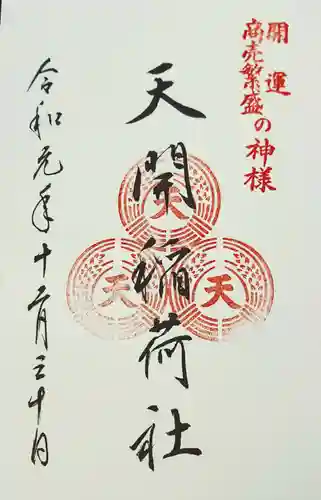 開運
商売繁盛の神様
天開稲荷社
天
天
天
令和元年十二月三十日